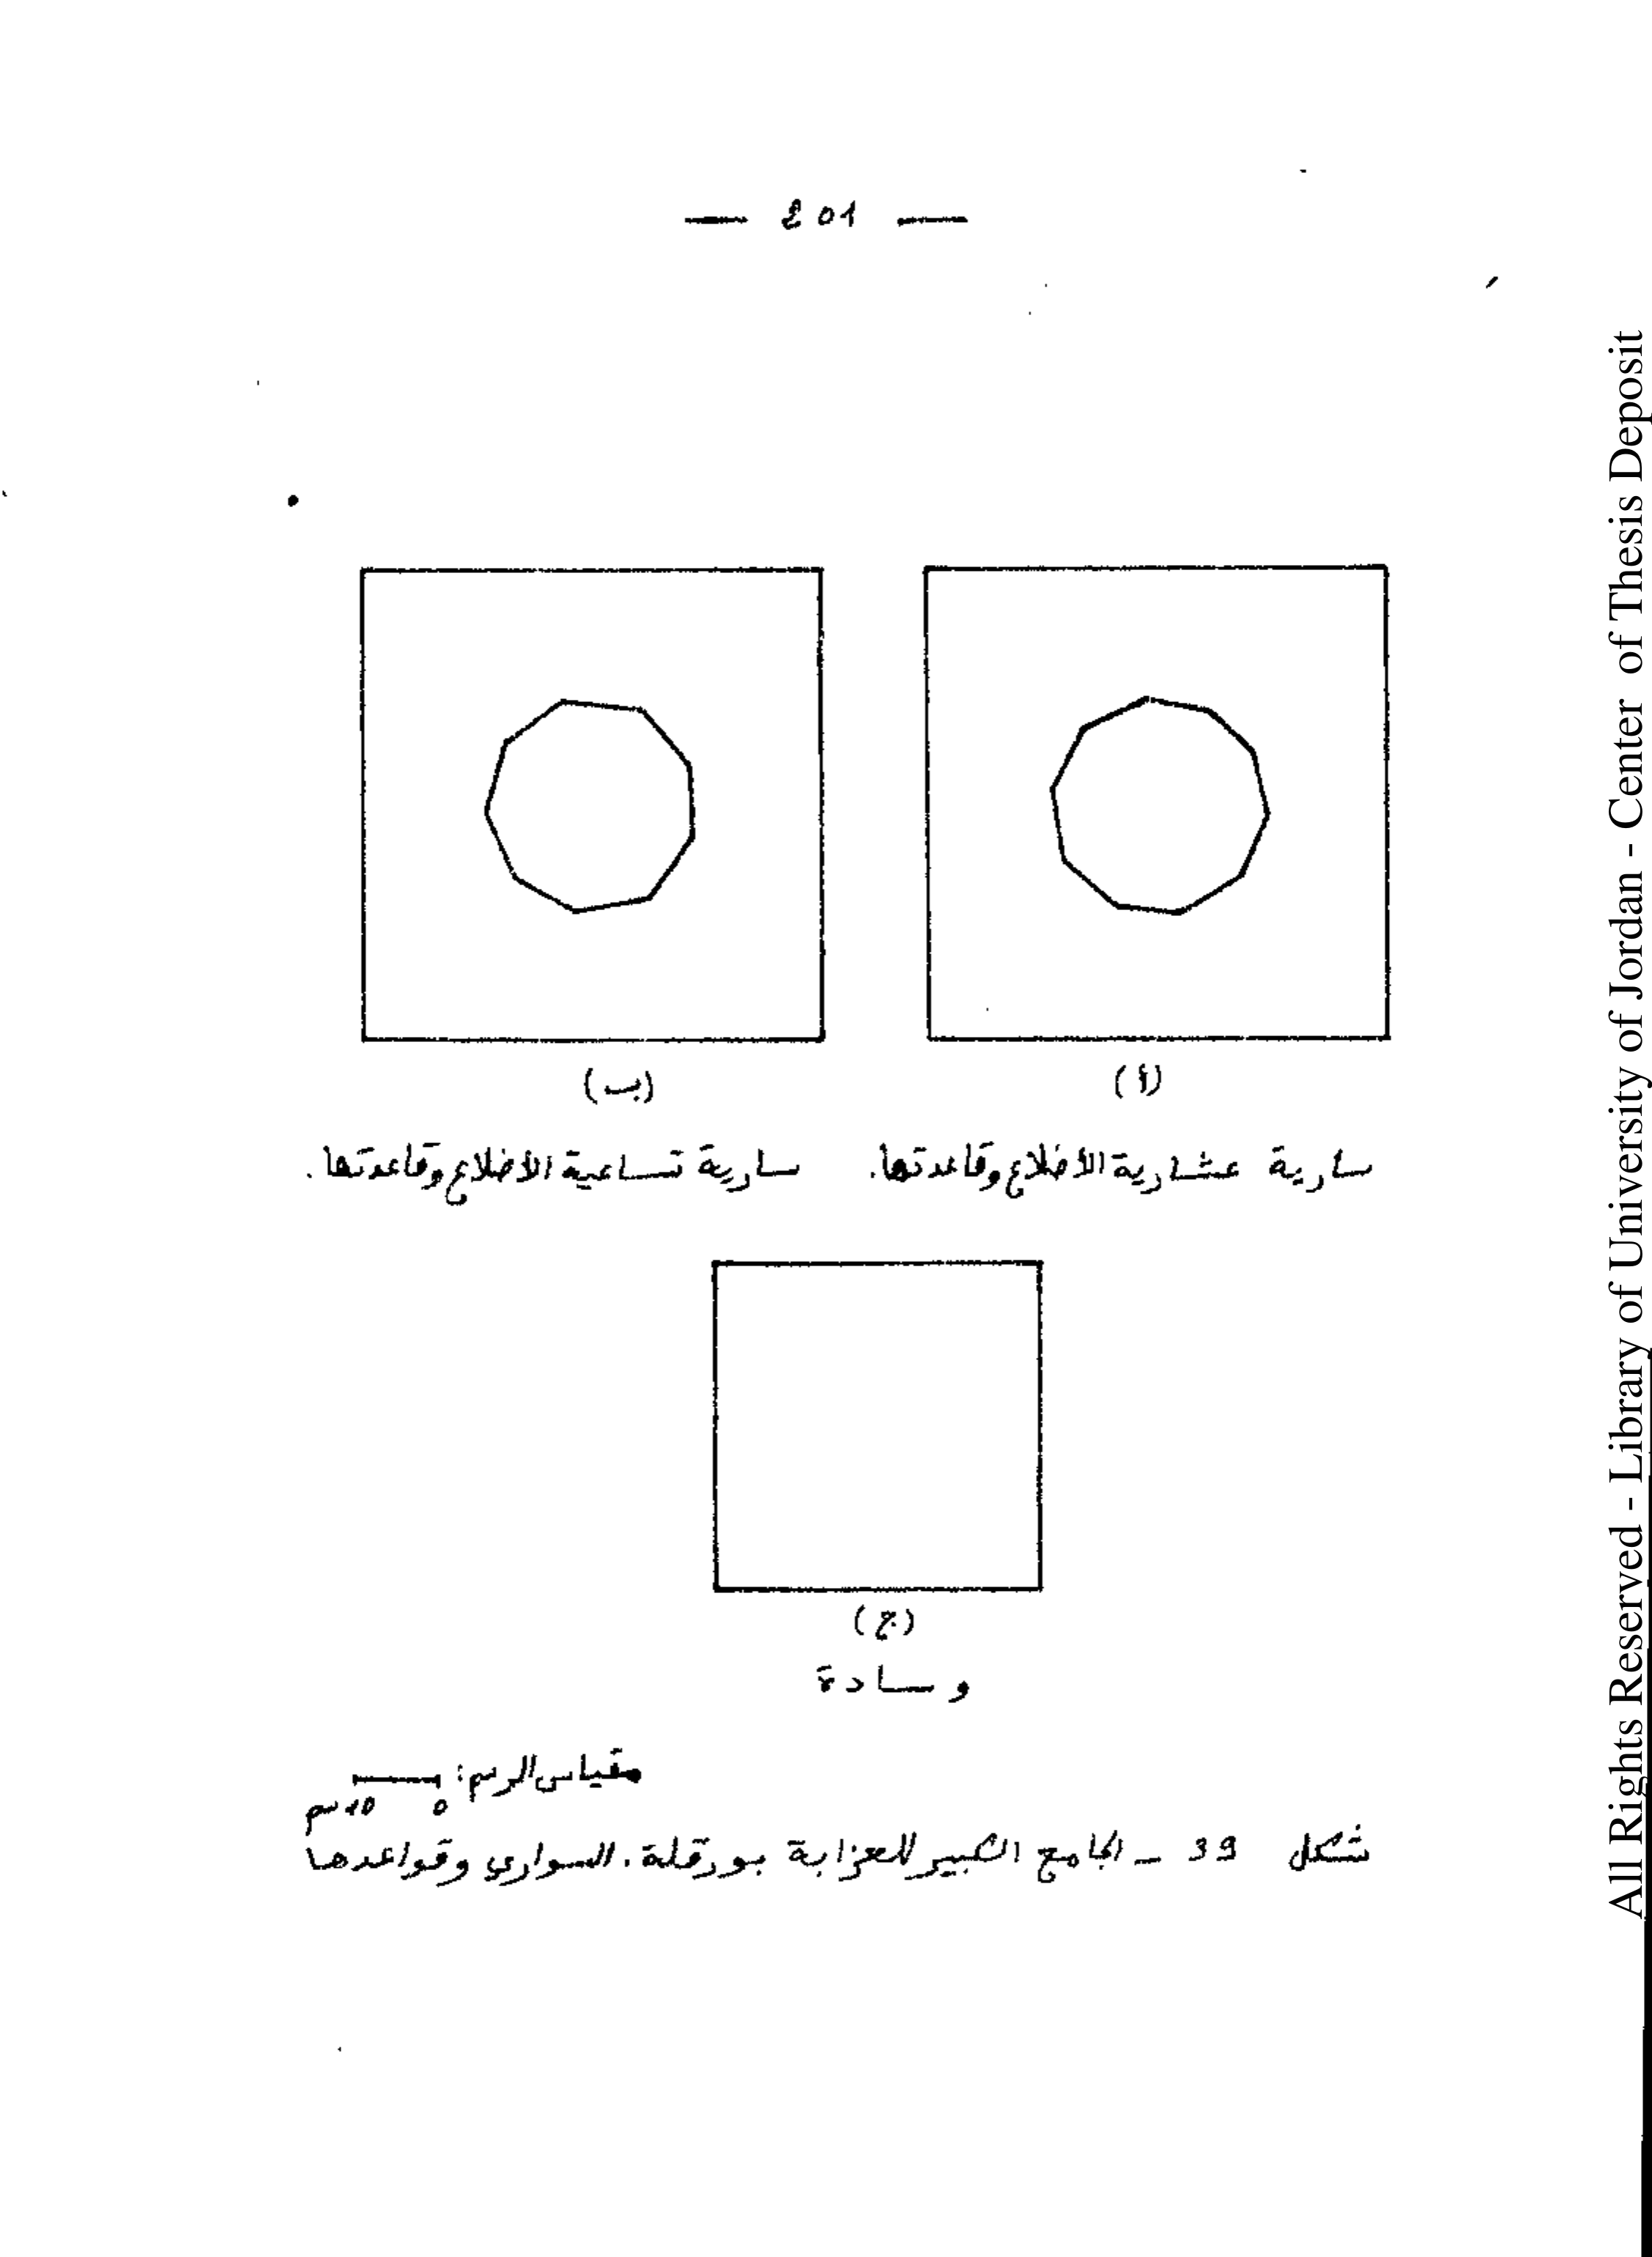 — 201 —
(أ)
(ب)
سارية عشارية الأضلاع وقاعدتها.
سارية تساعية الأضلاع وقاعدتها.
(ج)
وسادة
مقياس الرسم:
0 10 سم
شكل 39 - الجامع الكبير للعزابة بورقلة. السواري وقواعدها
All Rights Reserved - Library of University of Jordan - Center of Thesis Deposit